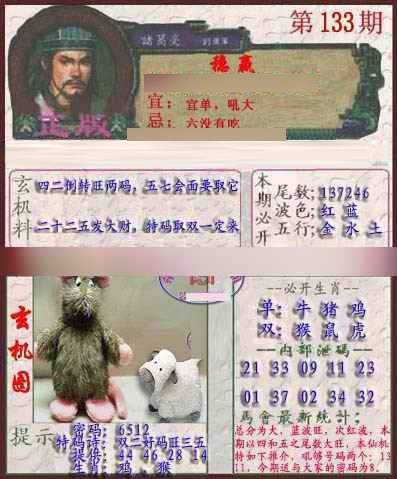 第133期
諸葛亮
稳赢
宜：宜单，吼大
忌：六没有吃
正版
玄机料
四二倒转旺两码，五七会面要取它
二十二五发大财，特码取双一定来
本期必开
尾数：137246
波色：红 蓝
五行：金 水 土
玄机图
--必开生肖--
单：牛 猪 鸡
双：猴 鼠 虎
--内部泄码--
21 33 09 11 23
01 37 02 34 32
提示
密码：6512
特码诗：双二好码旺三五
提倍：44 46 28 14
生肖：鸡，猴
馬會最新统计：
总分为大，蓝波旺，次红波，本
期以四和五之尾数大旺，本仙机
特如下推介，吼够号码两个：13
11，今期送与大家的密码为8.